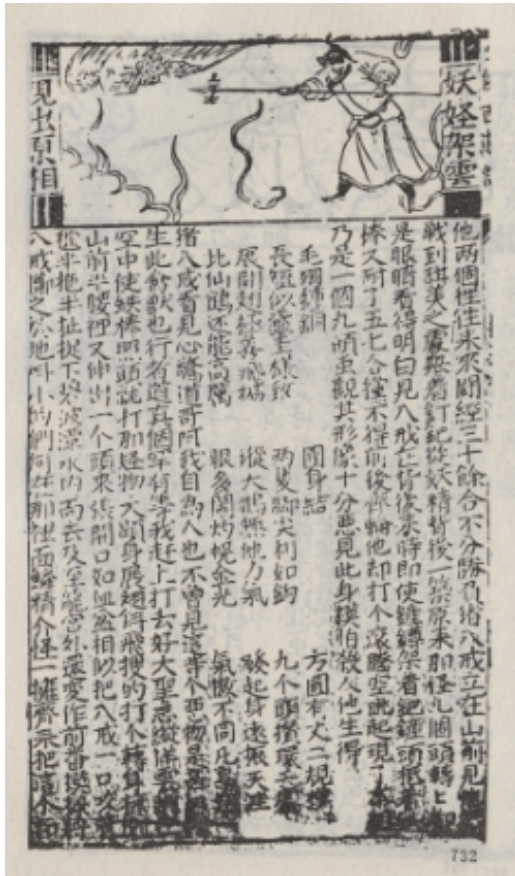 妖怪架雲
現出原相
他两個徃徃來來閗經三十餘合不分勝負猪八戒立在山前見他
戰到甜美之處舉着釘鈀從妖精背後一築原來那怪九個頭轉上都
是眼睛看得明白見八戒在背後來時即使鏟鐏架着鈀鏟頭抵着
棒又耐了五七合擋不得前後齊輪他却打个滚騰空跳起現了本像
乃是一個九頭虫觀其形像十分惡見此身模怕殺人他生得
毛羽鋪錦 團身結 方圓有丈二規模
長短似黿鼉樣致 两隻脚尖利如鈎 九个頭攢環一處
展開翅極善飛揚 縱大鵬無他力氣 發起身遠振天涯
比仙鶴還能高唳 眼多閃灼幌金光 氣傲不同凡鳥
猪八戒看見心驚道哥阿我自為人也不曾見這等个惡物是甚血
生此禽獸也行者道真個罕有等我赶上打去好大聖急縱祥雲跳
空中使鉄棒照頭就打那怪物大顯身展翅斜飛搜的打个轉身掠
山前半腰裡又伸出一个頭來張開口如血盆相似把八戒一口咬着
半拖半扯捉下碧波潭水内而去及至龍宮外還變作前番模樣將
八戒擲之於地叫小的們何在那裡面介怪一擁齊來把這木和
732